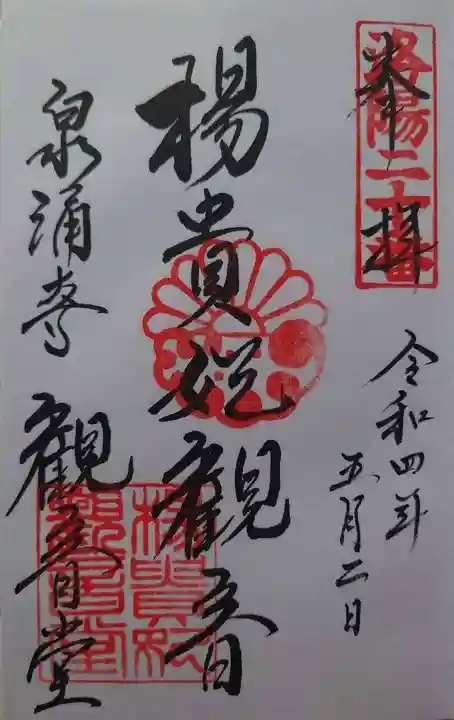 奉拝
洛陽二十番
令和四年
五月二日
楊貴妃観音
泉涌寺 観音堂
楊貴妃
観音堂